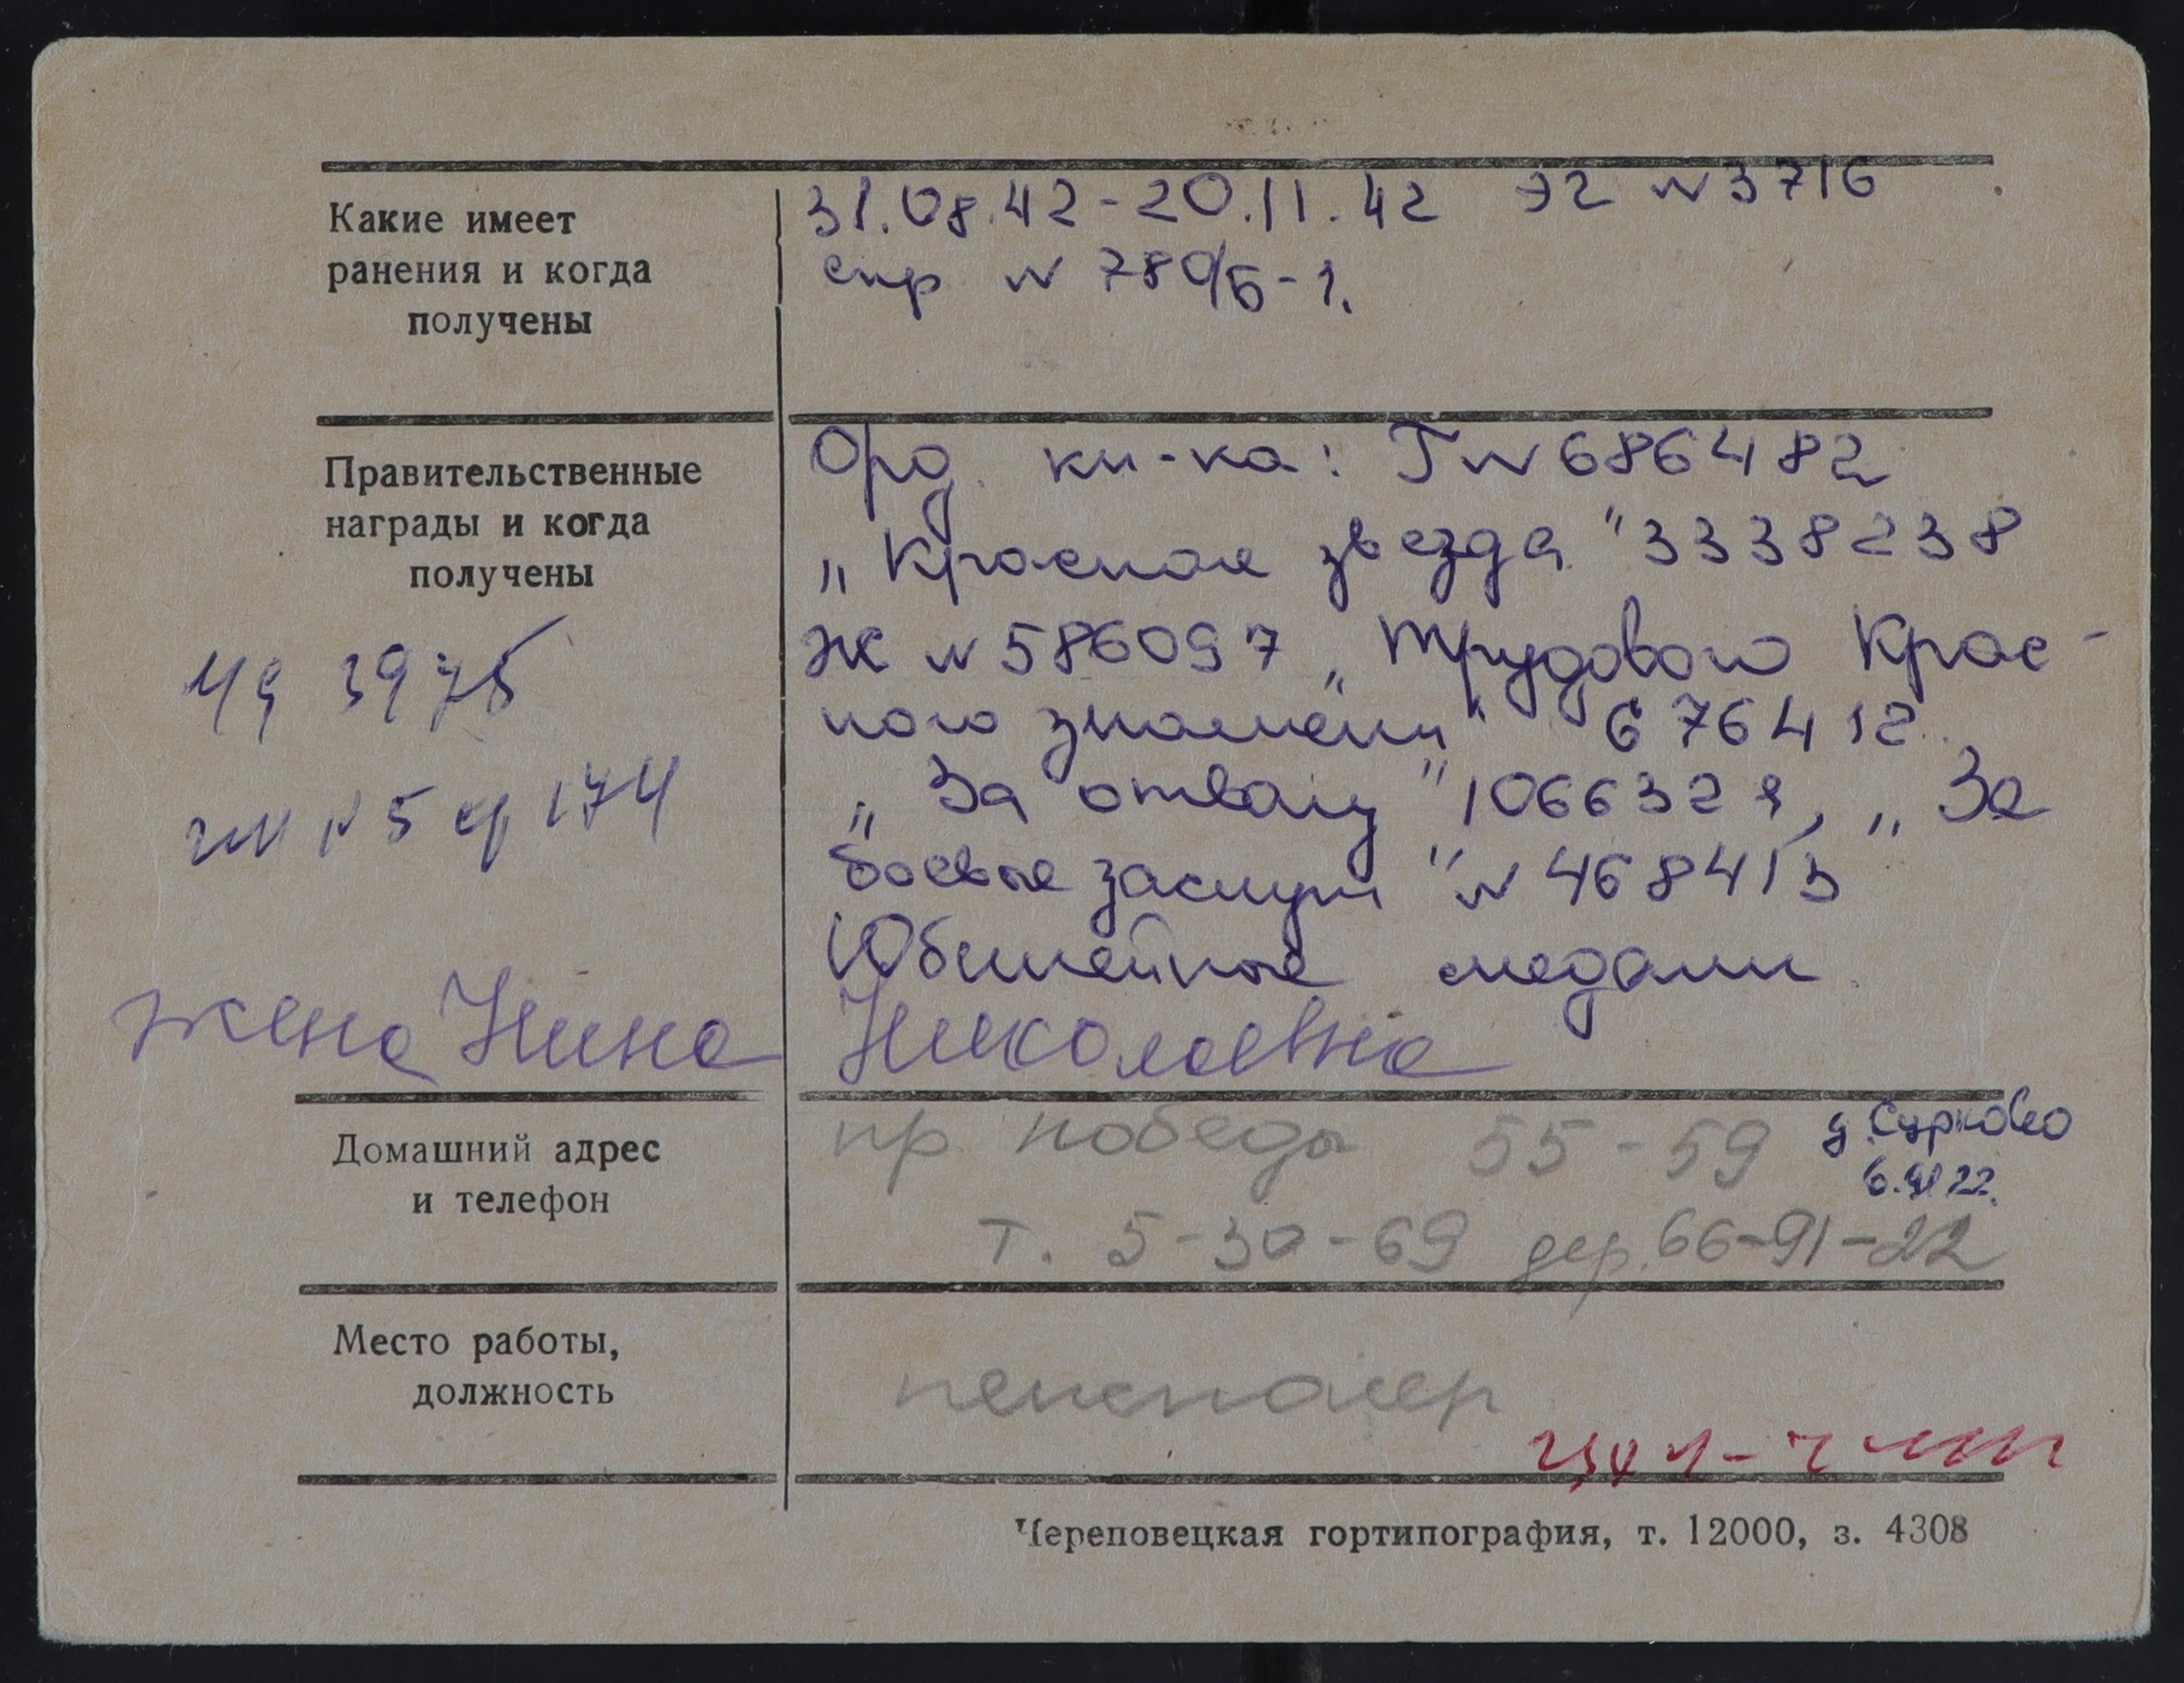 Какие имеет
ранения и когда
получены
31.08.42-20.11.42 ЭГ N 3716
спр N 780/Б-1.
Правительственные
награды и когда
получены
Орд. кн-ка: Г N 686482
„Красная звезда" 3338238
Ж N 586097 „Трудового Крас-
ного знамени" 676412
„За отвагу" 1066329, „За
боевые заслуги" N 468413
Юбилейные медали.
3975
N 5 174
жена Нина Николаевна
Домашний адрес
и телефон
пр. Победы 55-59 д.Сурково
6.91 22.
т. 5-30-69 дер. 66-91-22
Место работы,
должность
пенсионер
Череповецкая гортипография, т. 12000, з. 4308